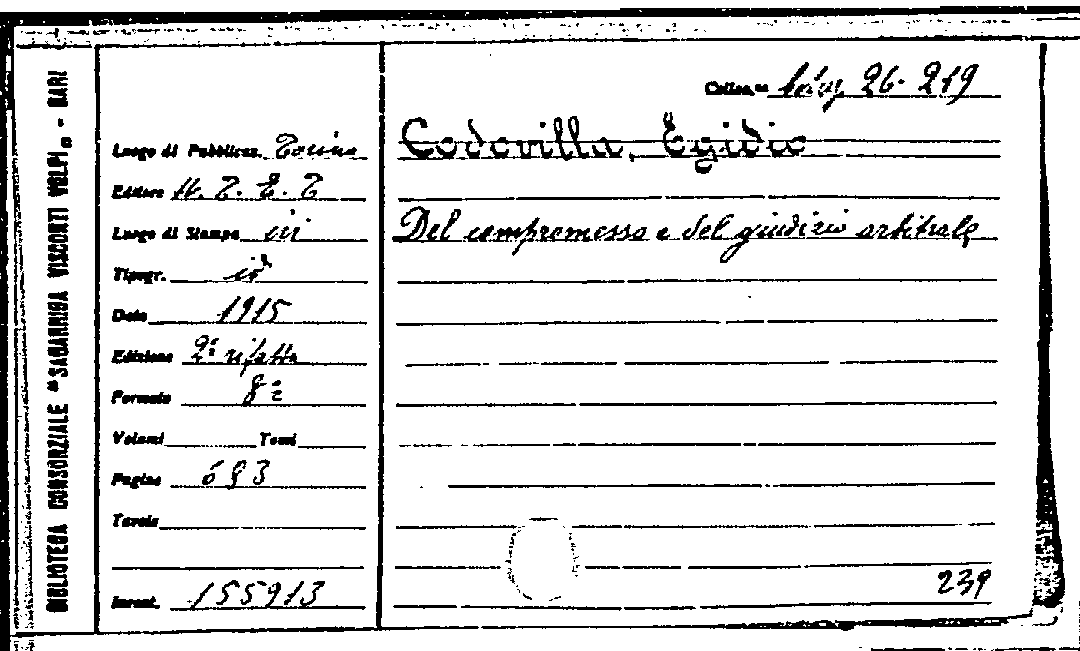 BIBLIOTECA CONSORZIALE "SAGARRIGA VISCONTI VOLPI„ - BARI
Collocne 26-219
Luogo di Pubblicaz. Torino
Codovilla, Egidio
Editore U. T. E. T
Luogo di Stampa ivi
Del compromesso e del giudizio arbitrale
Tipogr. id
Data 1915
Edizione 2ª rifatta
Formato 8º
Volumi Tomi
Pagine 693
Tavole
Invent. 155913
239